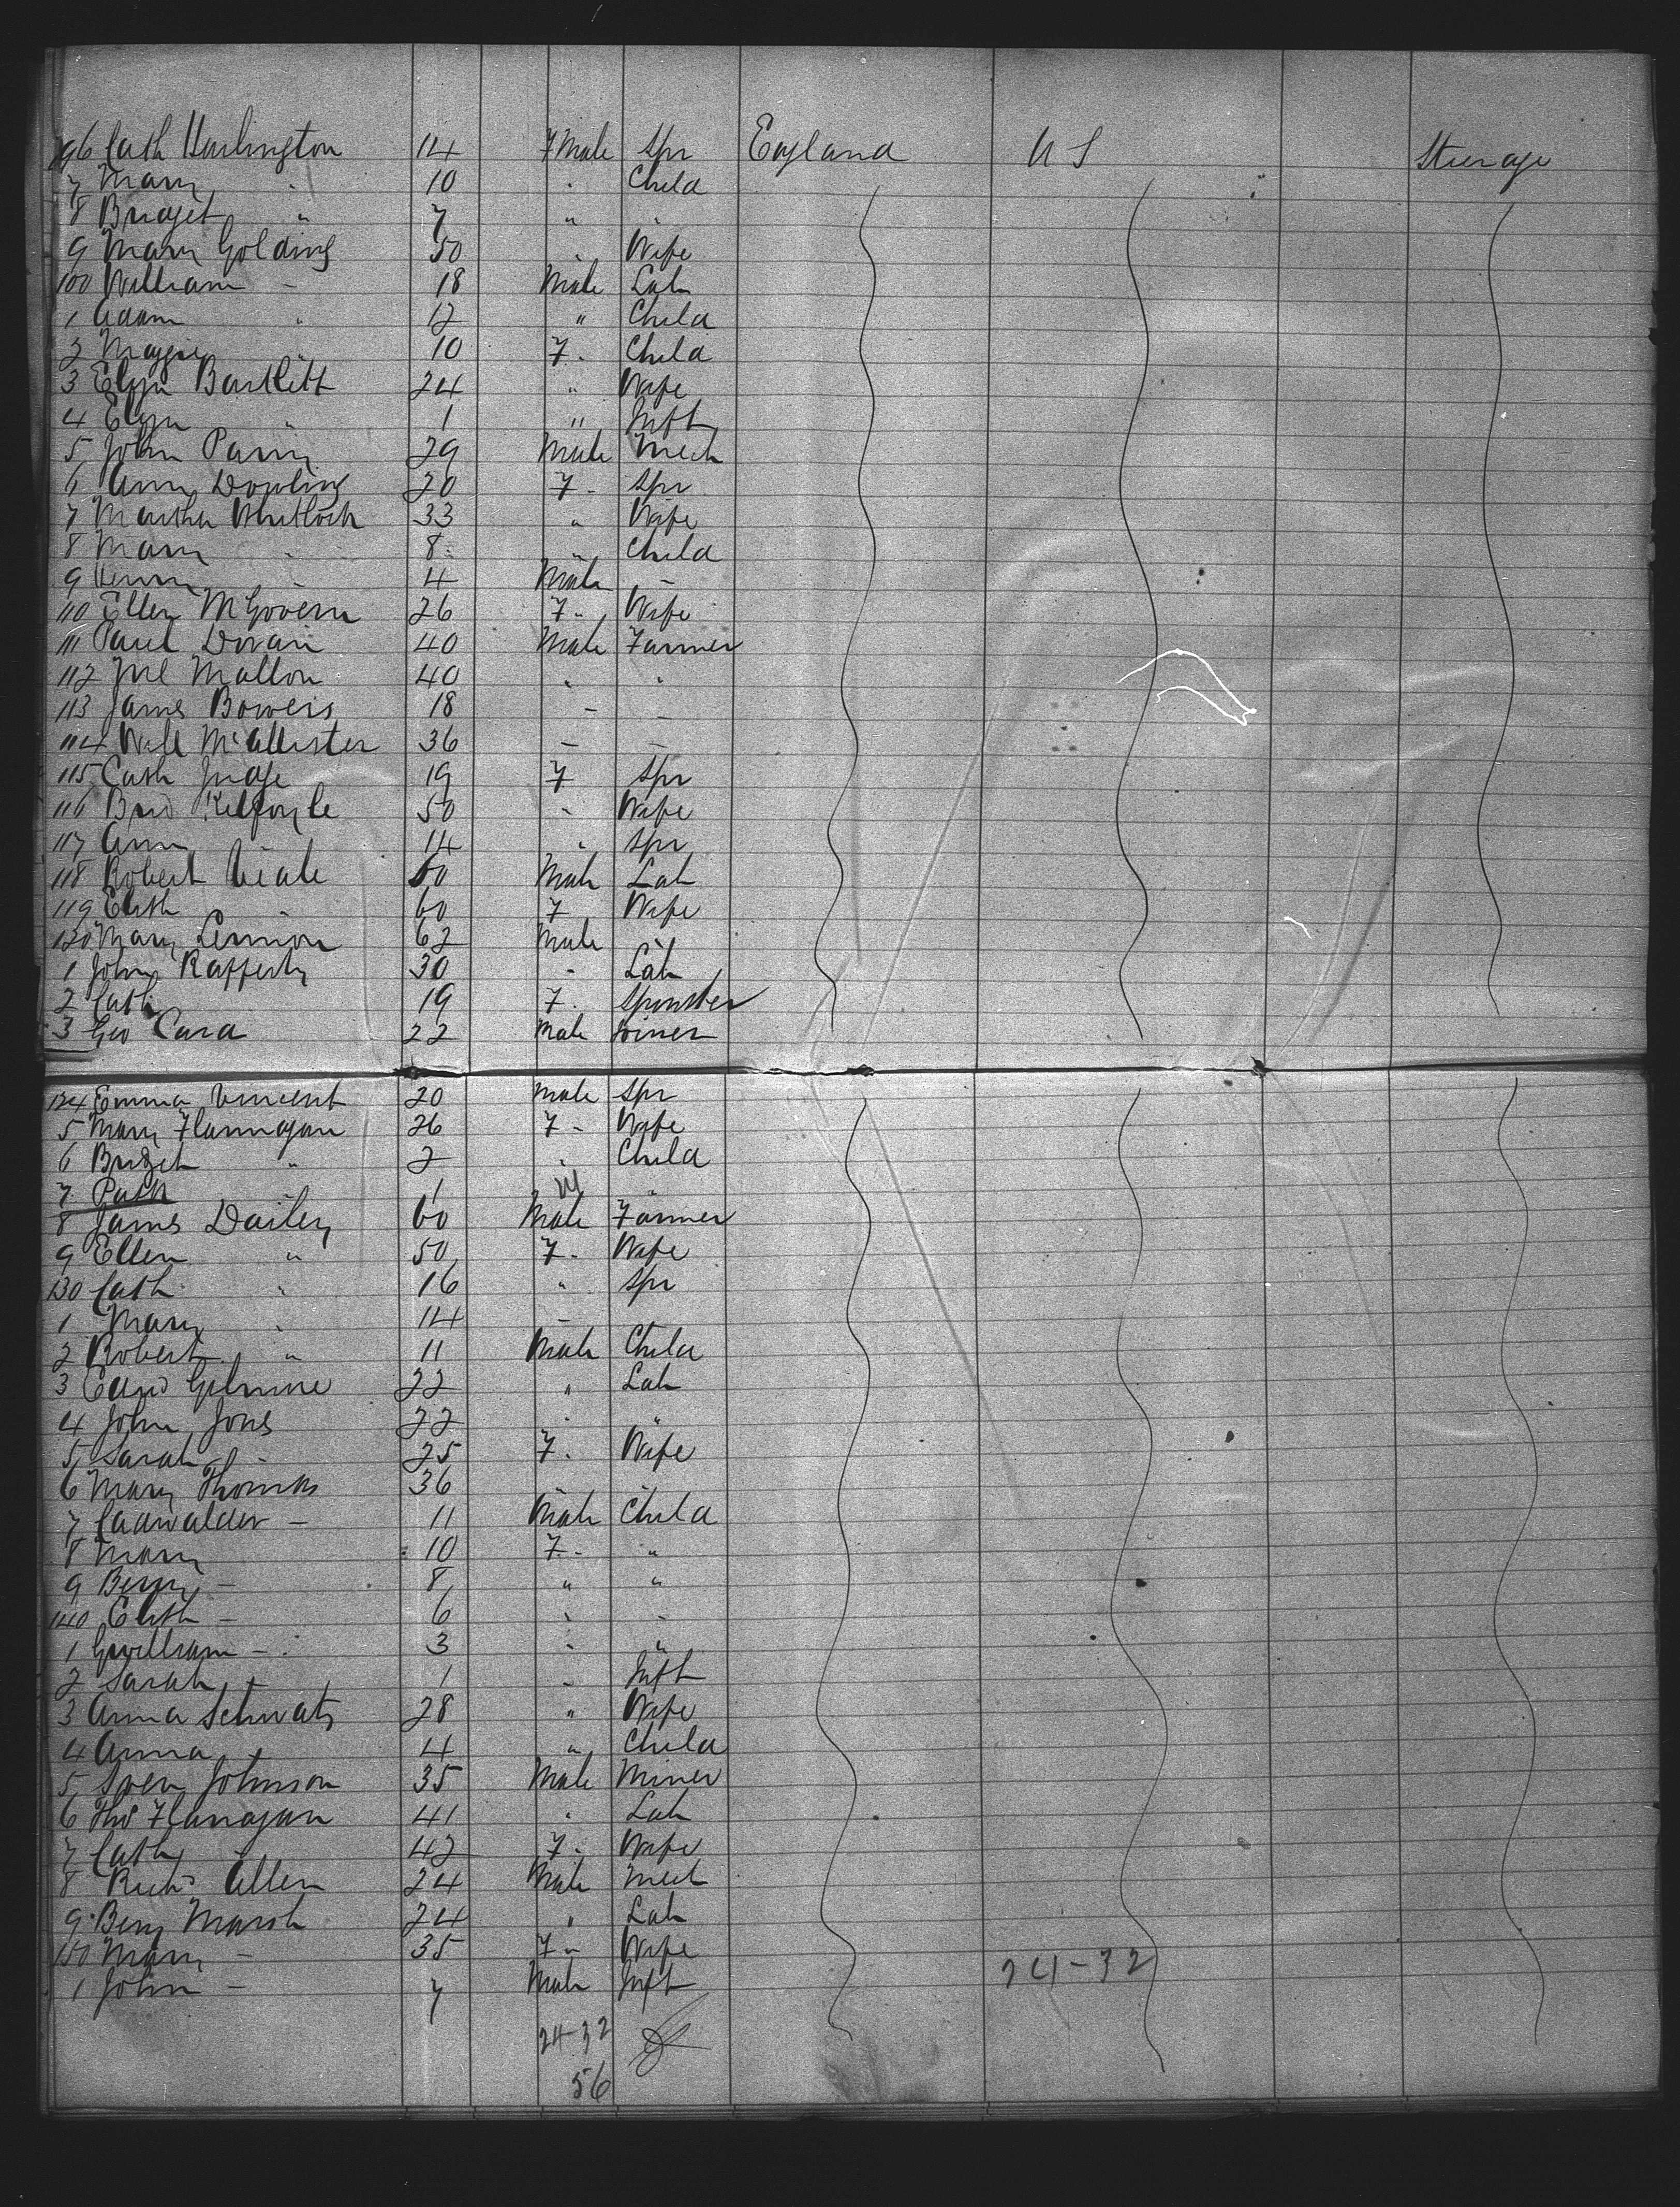 96 Cath Harlington 14 Fmale Spr England US Steerage
7 Mary " 10 " Child
8 Bridget " 7 " "
9 Mary Golding 50 " Wife
100 William - 18 Male Lab
1 Adam " 12 " Child
2 Maggie 10 F. Child
3 Eliza Bartlett 24 " Wife
4 Eliza " 1 " Inft
5 John Parry 29 Male Mech
6 Ann Dowling 20 F - Spr
7 Martha Whitlock 33 " Wife
8 Mary " 8 " Child
9 Henry - 4 Male -
110 Ellen McGovern 26 F - Wife
111 Paul Doran 40 Male Farmer
112 Mallon 40 " "
113 James Bowers 18 - -
114 Will McAllister 36 - -
115 Cath Judge 19 F Spr
116 Brid Kilfoyle 50 " Wife
117 Ann 14 " Spr
118 Robert Veale 60 Male Lab
119 Elith 60 F Wife
120 Mary Lennion 62 Male "
1 John Rafferty 30 - Lab
2 Cath 19 F. Spinster
3 Geo Card 22 Male Joiner
124 Emma Vincent 20 Male Spr
5 Mary Flannagan 26 F - Wife
6 Bridget " 2 " Child
7 Patk 1 M "
8 James Dailey 60 Male Farmer
9 Ellen " 50 F - Wife
130 Cath " 16 " Spr
1 Mary " 14 -
2 Robert " 11 Male Child
3 Edwd Gilmore 22 " Lab
4 John Jones 22 " "
5 Sarah - 25 F. Wife
6 Mary Thomas 36 " "
7 Cadwalder - 11 Male Child
8 Mary 10 F - "
9 Benj - 8 " "
140 Elith - 6 " "
1 Gwilliam - 3 " "
2 Sarah - 1 " Inft
3 Anna Schwatz 28 " Wife
4 Anna 4 " Child
5 Sven Johnson 35 Male Miner
6 Thos Flanagan 41 " Lab
7 Cath 42 F - Wife
8 Richd Allen 24 Male Mech
9 Benj Marsh 24 " Lab
150 Mary - 35 F - Wife
1 John - 7 Male Inft 24-32
24-32
56